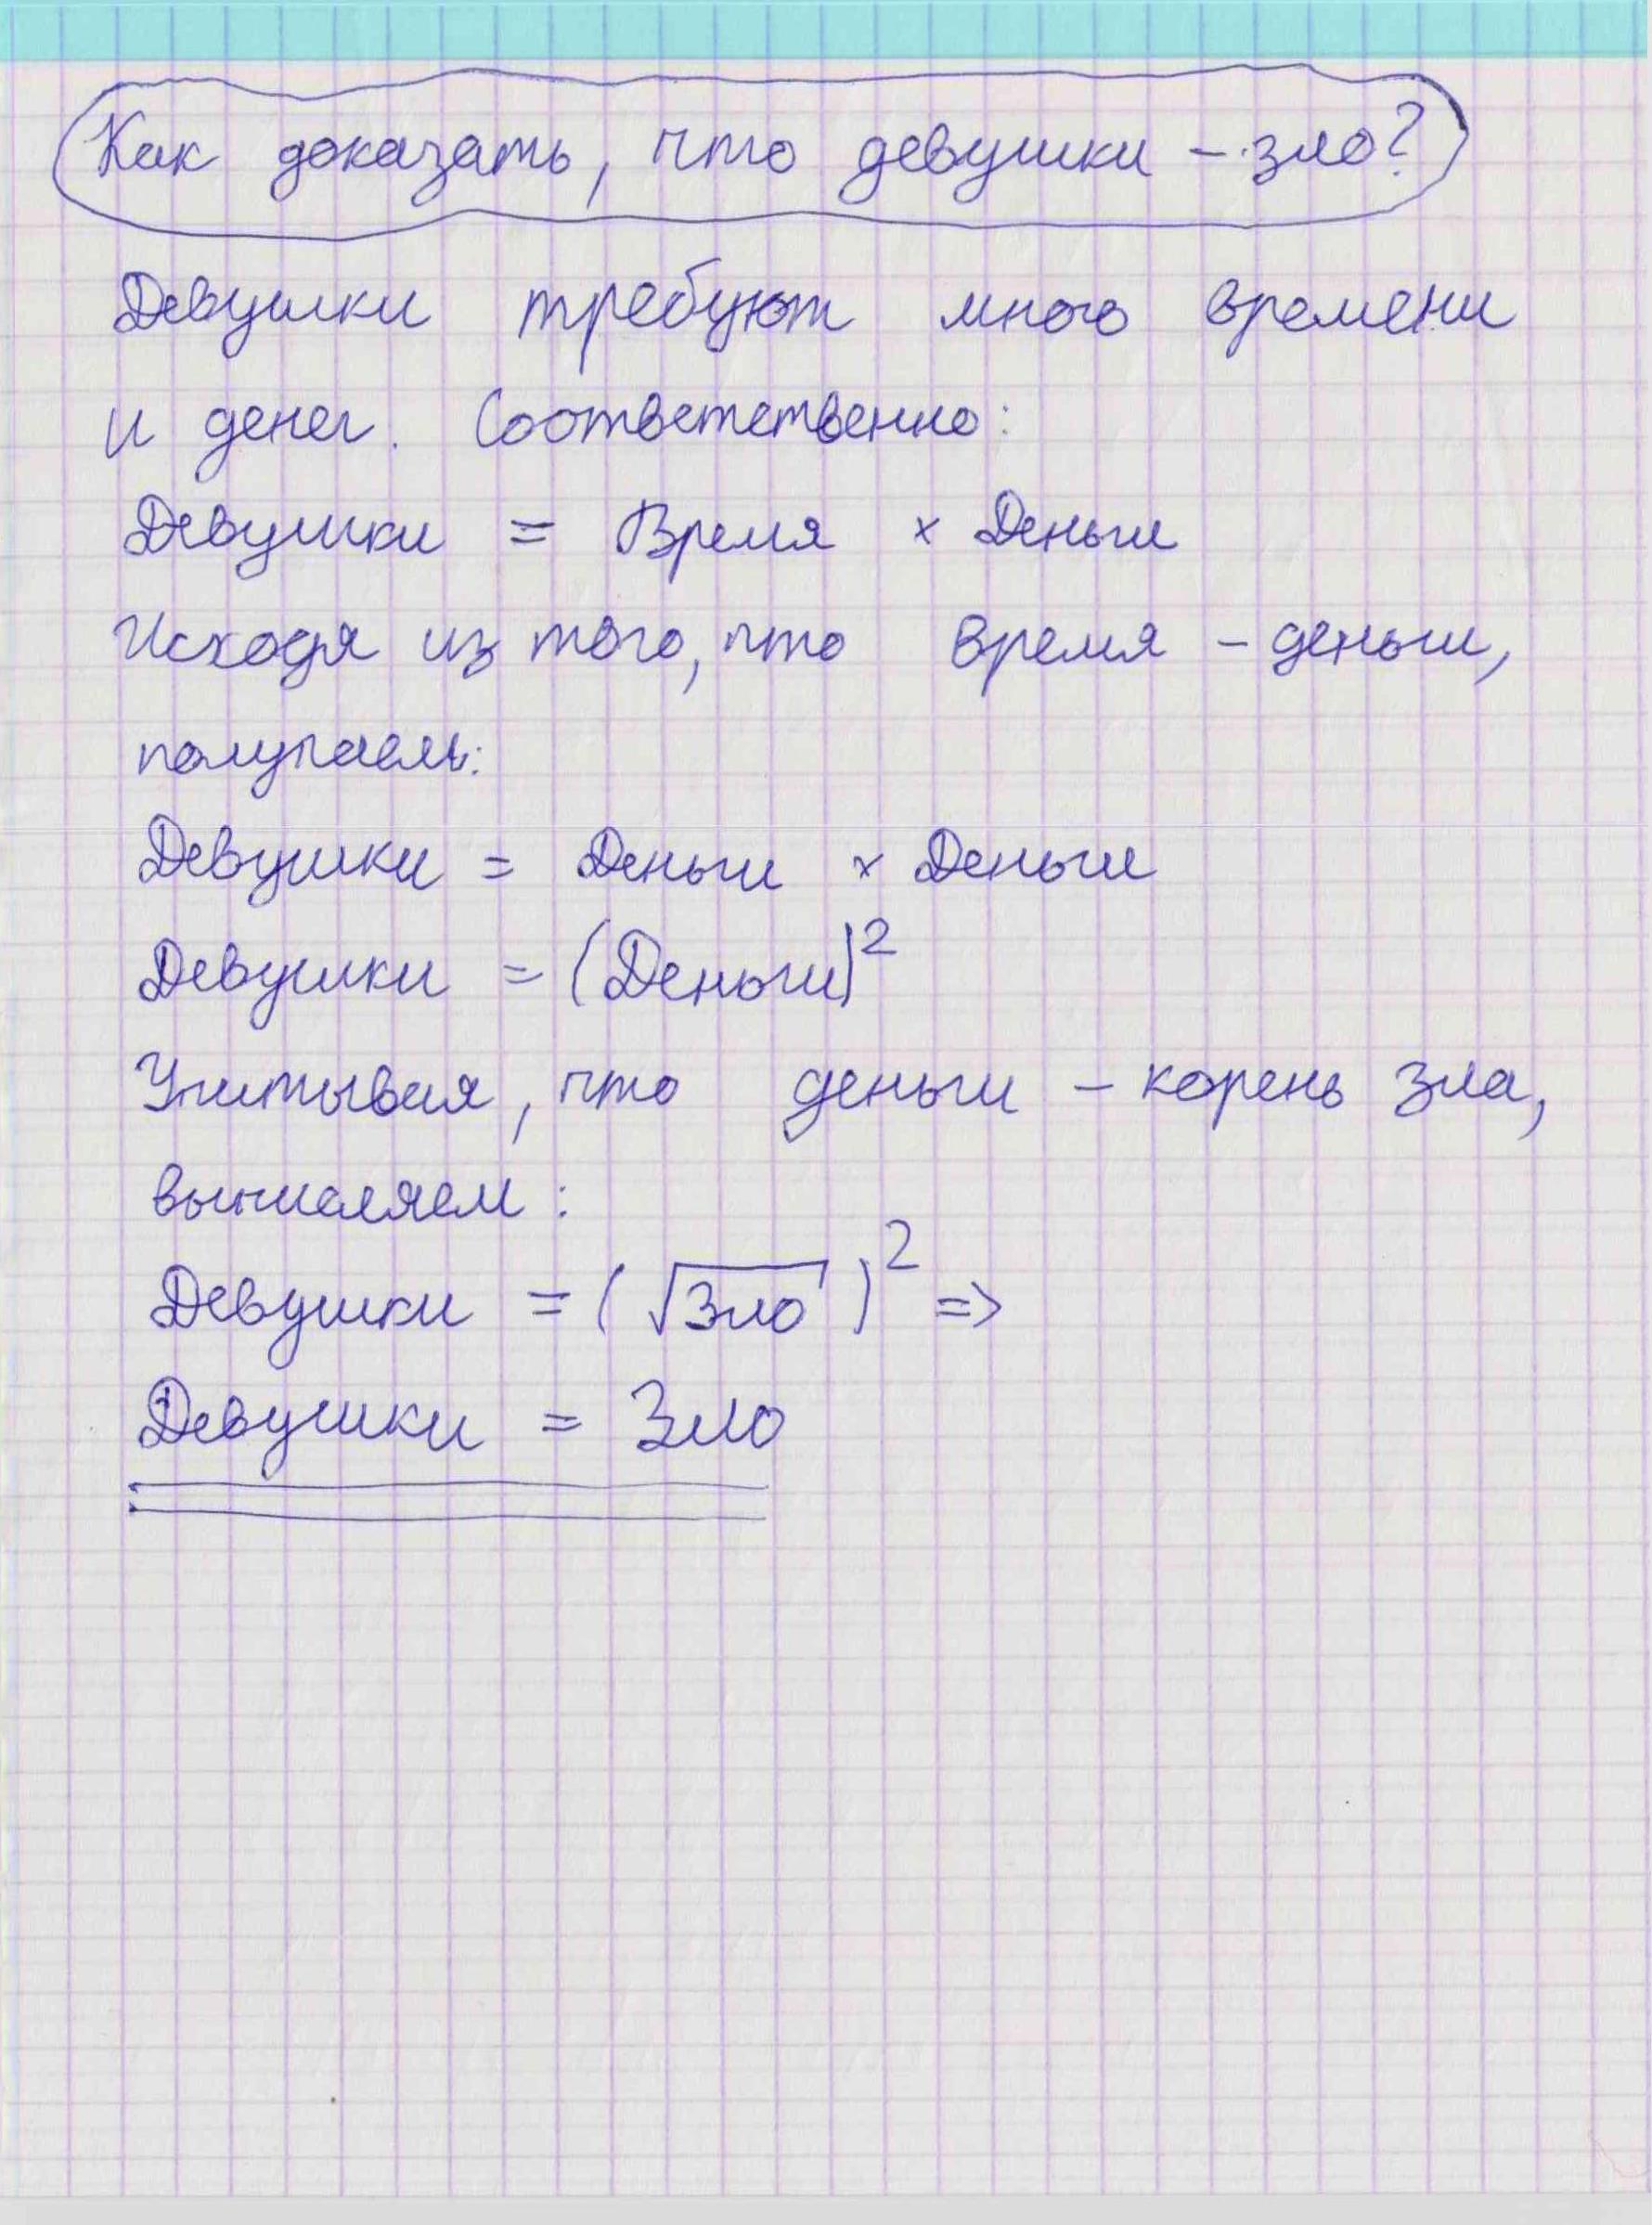 Как доказать, что девушки - зло?
Девушки требуют много времени
и денег. Соответственно:
Девушки = Время × Деньги
Исходя из того, что время - деньги,
получаем:
Девушки = Деньги × Деньги
Девушки = (Деньги)²
Учитывая, что деньги - корень зла,
вычисляем:
Девушки = (√Зло)² =>
Девушки = Зло